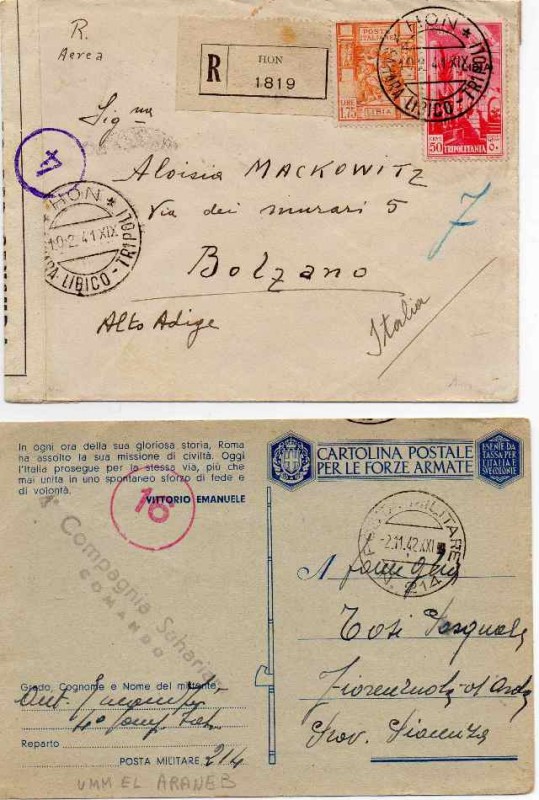 R.
Aerea
R
HON
1819
POSTE ITALIANE
LIRE
1,75
LIBIA
50
TRIPOLITANIA
HON
10.2.41 XIX
LIBICO - TRIPOLI
Sig.na
14
HON
10.2.41 XIX
LIBICO - TRIPOLI
Aloisia MACKOWITZ
Via dei murari 5
7
Bolzano
Alto Adige
Italia
In ogni ora della sua gloriosa storia, Roma
ha assolto la sua missione di civiltà. Oggi
l'Italia prosegue per la stessa via, più che
mai unita in uno spontaneo sforzo di fede e
di volontà.
VITTORIO EMANUELE
16
4ª Compagnia Sahariana
COMANDO
CARTOLINA POSTALE
PER LE FORZE ARMATE
ESENTE DA
TASSA PER
L'ITALIA E
SUE COLONIE
POSTA MILITARE
-2.11.42.XXI
N. 214
Grado, Cognome e Nome del militare
Reparto
POSTA MILITARE 214
UMM EL ARANEB
Tosi Pasquale
Fiorenzuola d'Arda
Prov. Piacenza